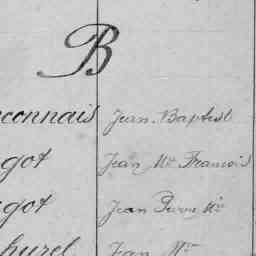 B
connais Jean Baptist
got Jean Mie François
got Jean Pierre Mie
hurel Jean Mie